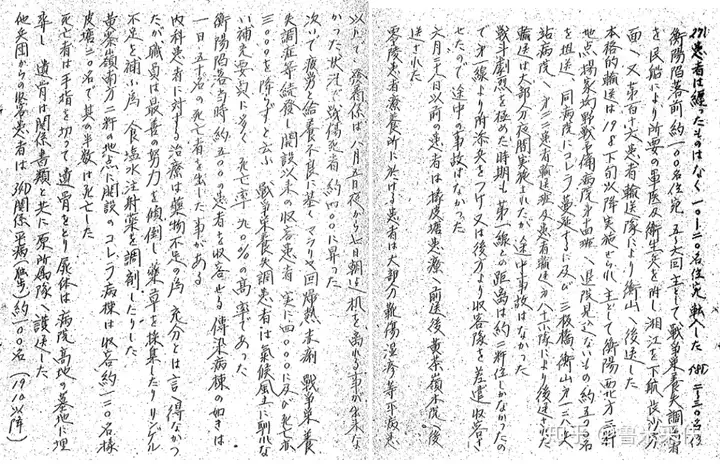 患者は纏ったものはなく一〇―二〇名位宛輸入した
衡陽陥落前約一〇〇名位宛五―六回主として戦争栄養失調患者
を民船により所要の軍医及衛生兵を附し湘江を下航長沙方
面へ又第百六患者輸送隊により衡山へ後送した
本格的輸送は 下旬以降実施せられ主として衡陽西北方三粁
地点揚家均野戦予備病院第 班へ退院見込ないもの約五〇名
を担送、同病院にコレラ蔓延するに及び三板橋衡山方一二八兵
站病院へ 患者輸送班及患者輸送 六十六隊により後送された
輸送は大部分夜間実施されたが途中事故はなかった
戦斗劇烈を極めた時期も第一線との距離は約二粁位しかなかったの
で第一線より附添兵をつけ又は後方より収容隊を差遣収容さ
せたので途中の事故はなかった
六月二十日以前の患者は橡皮塘患療へ前送後黄茶嶺本院へ後
送された
零陵患者療養所に於ける患者は大部分靴傷湿疹等平病患
以て 係は八月五日夜から七日朝は机を離れる事が出来な
かった状況で戦傷死者約四〇〇に昇った
次いで疲労と給養不良に基くマラリヤ回帰熱赤痢戦争栄養
失調症等続発し開設以来の収容患者実に四〇〇〇に及び死亡者
三〇〇〇を降らずと云ふ 戦争栄養失調患者は気候風土に馴れな
い補充要員に多く死亡率九〇%の高率であった
衡陽陥落当時約五〇〇〇の患者を収容せる傳染病棟の如きは
一日五十名の死亡者を出した事がある
内科患者に対する治療は薬物不足の為充分とは言へ得なかっ
たが職員は最善の努力を傾倒し薬草を採集したりリンゲル
不足を補ふ為食塩水注射薬を調剤したりした
黄茶嶺東方一粁の地点に開設のコレラ病棟は収容約一二〇名橡
皮塘二〇名で其の半数は死亡した
死亡者は手指を切って遺骨をとり屍体は病院高地の墓地に埋
葬し遺骨は関係書類と共に原所属隊へ護送した
他兵団からの収容患者は 関係平病 約一〇〇名 以降)
知乎 @